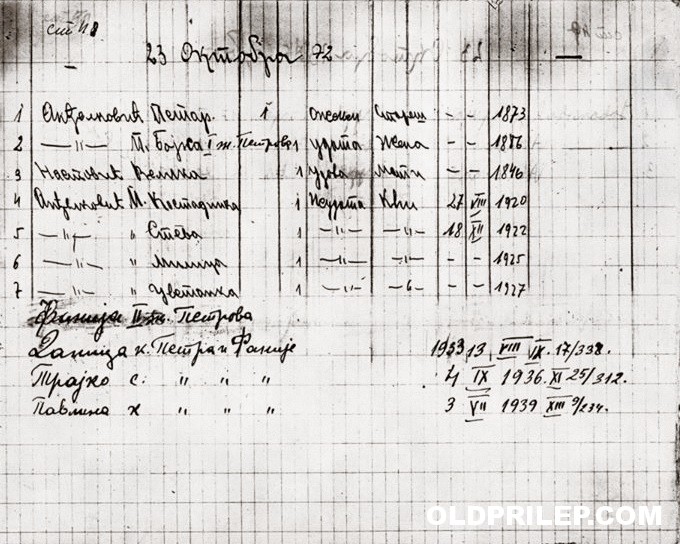 23 Октобра 72
1 Анђелковић Петар. 1 ожењен Стареш - - 1873
2 —〃— П. Бојка I ж. Петрова 1 удата Жена - - 1876
3 Настовић Велика 1 удова Мати - - 1846
4 Анђелковић П. Костадинка 1 Неудата Кћи 27 VIII 1920
5 —〃— 〃 Стева 1 —〃— —〃— 18 XII 1922
6 —〃— 〃 Милица 1 —〃— —〃— - - 1925
7 —〃— 〃 Цветанка 1 —〃— —〃— - - 1927
Фанија II ж. Петрова
Даница к. Петра и Фаније 1933 13 VIII IX. 17/338.
Трајко с: 〃 〃 〃 4 IX 1936. XI 25/312.
Павлина к 〃 〃 〃 3 VII 1939 XIII 9/234.
OLDPRILEP.COM